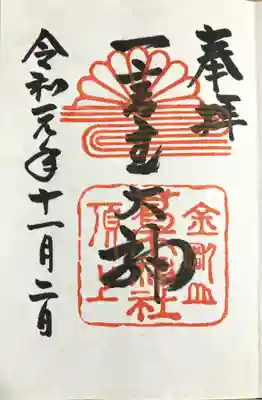 奉拝
一言主大神
令和元年十一月二日
金剛山
葛木神社
頂上